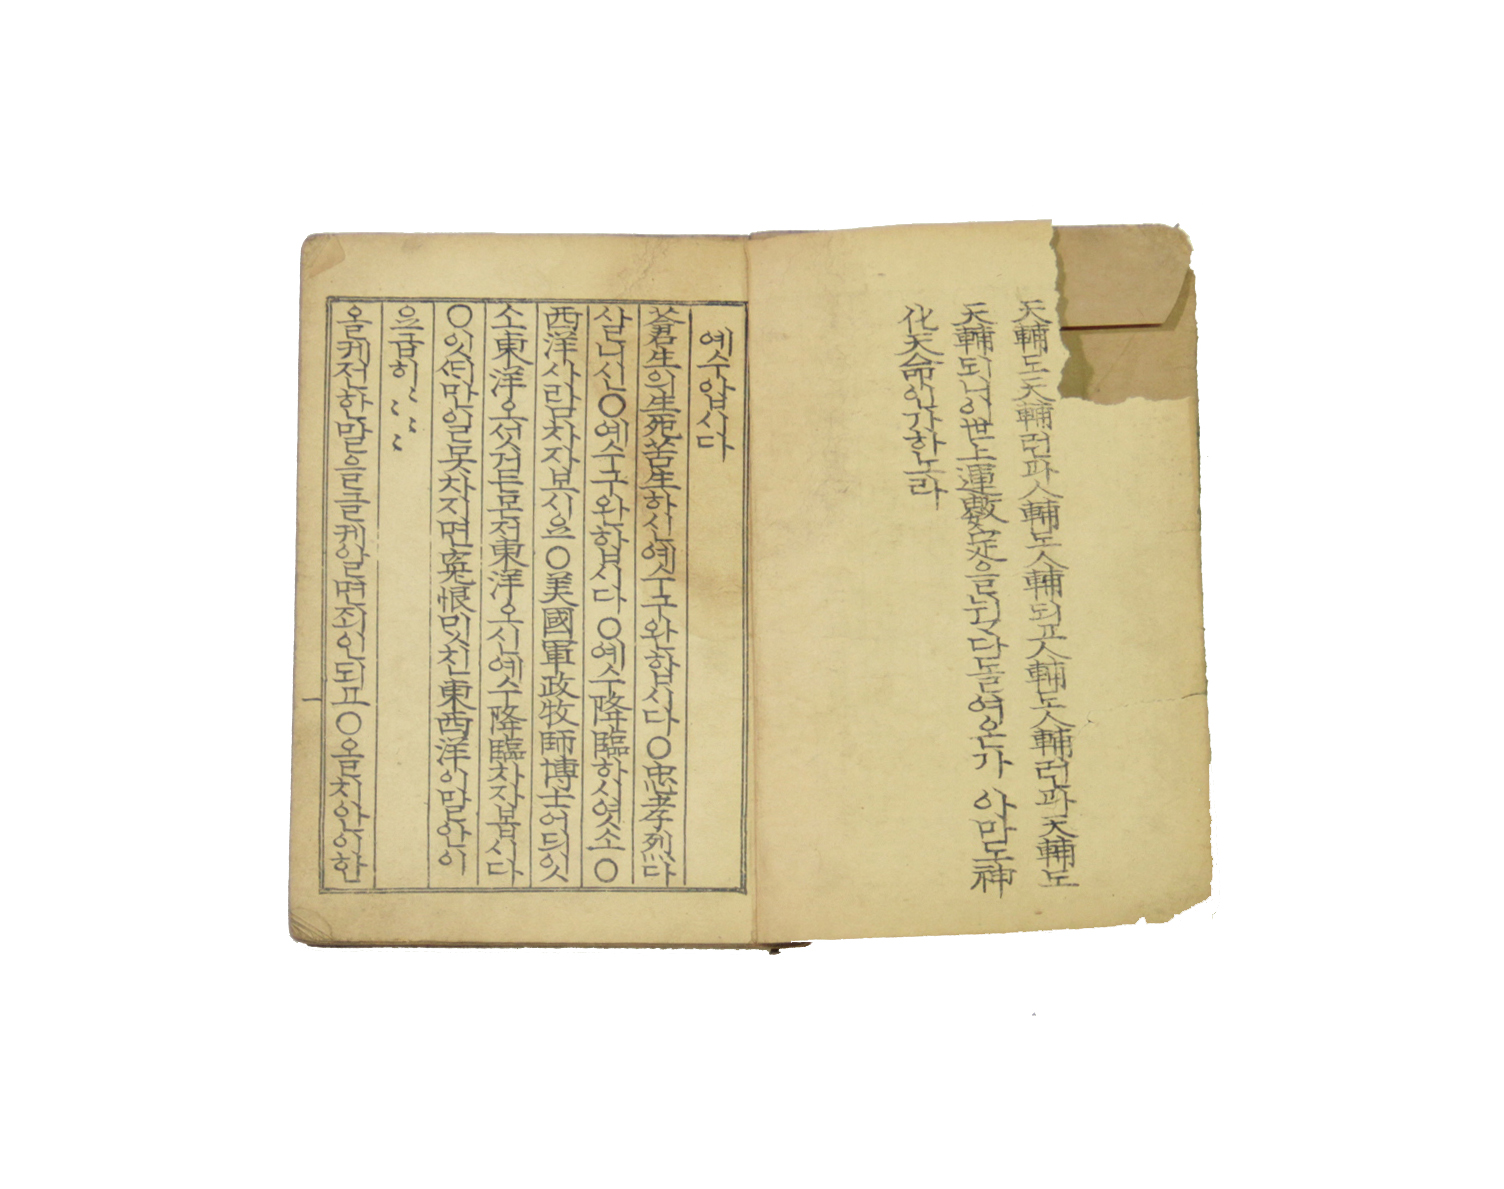 天輔도天輔런과人輔도人輔되고人輔도人輔런과天輔도
天輔되니이世上運數定을뉘다돌여온가 아만도神
化天命인가하노라
예수압시다
蒼生의生死苦生하신예수구완합시다○忠孝烈다
살니신○예수구완합시다○예수降臨하시엿소○
西洋사람차자보시요○美國軍政牧師博士어듸잇
소東洋오섯거든몬저東洋오신예수降臨차자봅시다
○잇만일못차지면寃恨밋친東西洋이말안이
요급히
올케전한말을글케알면죄인되고○올치안이한